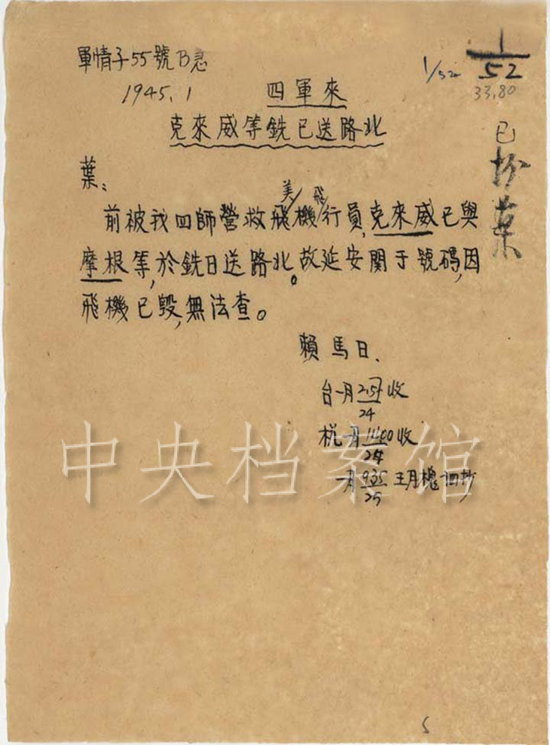 軍情子55號B急
1945.1
1/52
1
52
33,80
已抄葉
四軍來
克來威等銑已送路北
葉:
前被我四師營救美飛機飛行員,克來威已與
摩根等,於銑日送路北。故延安關于號碼,因
飛機已毀,無法查。
賴 馬日.
台一月 24 收
杭一月1100/24收
一月935/25
中央档案馆
5